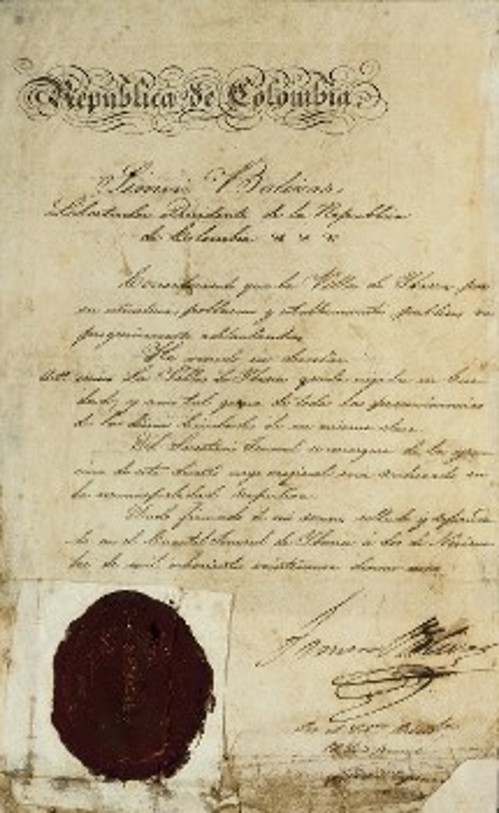 República de Colombia.
Simón Bolívar,
Libertador Presidente de la República
de Colombia
Considerando que la Villa de Ibarra por
su situacion, poblacion y establecimientos publicos se
He venido en decretar
Art. unico La Villa de Ibarra queda erijida en ciu-
dad, y como tal goza de todas las preeminencias
de las demas ciudades de su misma clase.
El Secretario General se encargara de la
de este decreto cuyo original sera archivado en
la municipalidad respectiva.
Dado firmado de mi mano, sellado y refrenda-
do en el Cuartel General de Ibarra á dos de Noviem-
bre de mil ochocientos veintinueve
Simon Bolivar
Por el